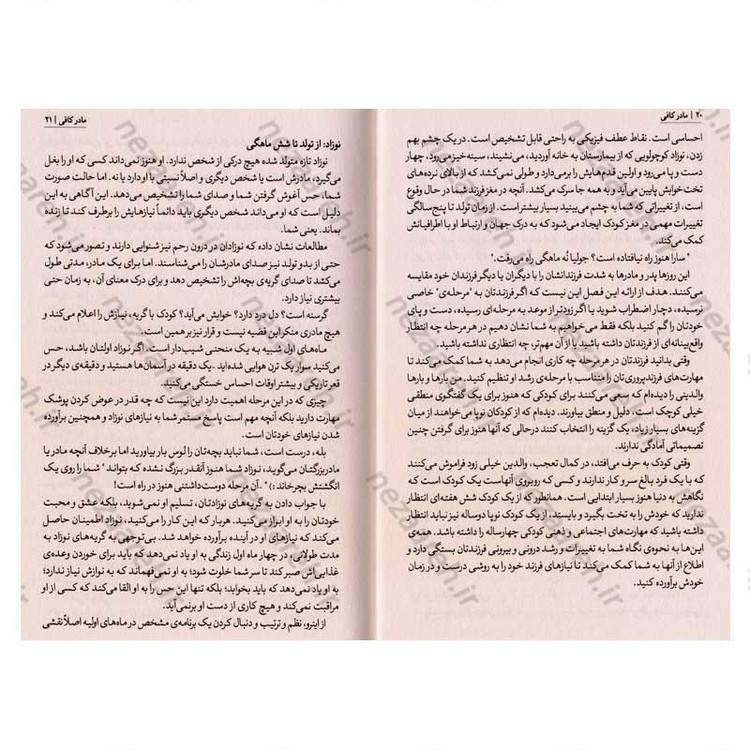 ۲۰ | مادر کافی
احساسی است. نقاط عطف فیزیکی به راحتی قابل تشخیص است. در یک چشم بهم
زدن، نوزاد کوچولویی که از بیمارستان به خانه آوردید، می‌نشیند، سینه‌خیز می‌رود، چهار
دست و پا می‌رود و اولین قدم‌هایش را برمی‌دارد و طولی نمی‌کشد که از بالای نرده‌های
تخت‌خوابش پایین می‌آید و به همه جا سرک می‌کشد. آنچه در مغز فرزند شما در حال وقوع
است، از تغییراتی که شما به چشم می‌بینید بسیار بیشتر است. از زمان تولد تا پنج‌سالگی
تغییرات مهمی در مغز کودک ایجاد می‌شود که به درک جهان و ارتباط او با اطرافیانش
کمک می‌کند.
" سارا هنوز راه نیافتاده است؟ جولیا نُه ماهگی راه می‌رفت."
این روزها پدر و مادرها به شدت فرزندانشان را با دیگران یا دیگر فرزندان خود مقایسه
می‌کنند. هدف از ارائه این فصل این نیست که اگر فرزندتان به "مرحله‌ی" خاصی
نرسیده، دچار اضطراب شوید یا اگر زودتر از موعد به مرحله‌ای رسیده، دست و پای
خودتان را گم کنید بلکه فقط می‌خواهیم به شما نشان دهیم در هر مرحله چه انتظار
واقع‌بینانه‌ای از فرزندتان داشته باشید یا از آن مهم‌تر، چه انتظاری نداشته باشید.
وقتی بدانید فرزندتان در هر مرحله چه کاری انجام می‌دهد به شما کمک می‌کند تا
مهارت‌های فرزندپروری‌تان را متناسب با مرحله‌ی رشد او تنظیم کنید. من بارها و بارها
والدینی را دیده‌ام که سعی می‌کنند برای کودکی که هنوز برای یک گفتگوی منطقی
خیلی کوچک است. دلیل و منطق بیاورند. دیده‌ام که از کودکان نوپا می‌خواهند از میان
گزینه‌های بسیار زیاد، یک گزینه را انتخاب کنند درحالی که آنها هنوز برای گرفتن چنین
تصمیماتی آمادگی ندارند.
وقتی کودک به حرف می‌افتد، در کمال تعجب، والدین خیلی زود فراموش می‌کنند
که با یک فرد بالغ سر و کار ندارند و کسی که روبروی آنهاست یک کودک است که
نگاهش به دنیا هنوز بسیار ابتدایی است. همانطور که از یک کودک شش هفته‌ای انتظار
ندارید که خودش را به تخت بگیرد و بایستد، از یک کودک نوپا دوساله نیز نباید انتظار
داشته باشید که مهارت‌های اجتماعی و ذهنی کودکی چهارساله را داشته باشد. همه‌ی
این‌ها به نحوه‌ی نگاه شما به تغییرات و رشد درونی و بیرونی فرزندتان بستگی دارد و
اطلاع از آنها به شما کمک می‌کند تا نیازهای فرزند خود را به روشی درست و در زمان
خودش برآورده کنید.
مادر کافی | ۲۱
نوزاد: از تولد تا شش ماهگی
نوزاد تازه متولد شده هیچ درکی از شخص ندارد. او هنوز نمی‌داند کسی که او را بغل
می‌گیرد، مادرش است یا شخص دیگری و اصلاً نسبتی با او دارد یا نه. اما حالت صورت
شما، حس آغوش گرفتن شما و صدای شما را تشخیص می‌دهد. این آگاهی به این
دلیل است که او می‌داند شخص دیگری باید دائماً نیازهایش را برطرف کند تا زنده
بماند. یعنی شما.
مطالعات نشان داده که نوزادان در درون رحم نیز شنوایی دارند و تصور می‌شود که
حتی از بدو تولد نیز صدای مادرشان را می‌شناسند. اما برای یک مادر، مدتی طول
می‌کشد تا صدای گریه‌ی بچه‌اش را تشخیص دهد و برای درک معنای آن، به زمان حتی
بیشتری نیاز دارد.
گرسنه است؟ دل درد دارد؟ خوابش می‌آید؟ کودک با گریه، نیازش را اعلام می‌کند و
هیچ مادری منکر این قضیه نیست و قرار نیز بر همین است.
ماه‌های اول شبیه به یک منحنی شیب‌دار است. اگر نوزاد اولتان باشد، حس
می‌کنید سوار یک ترن هوایی شده‌اید. یک دقیقه در آسمان‌ها هستید و دقیقه‌ی دیگر در
قعر تاریکی و بیشتر اوقات احساس خستگی می‌کنید.
چیزی که در این مرحله اهمیت دارد این نیست که چه قدر در عوض کردن پوشک
مهارت دارید بلکه آنچه مهم است پاسخ مستمر شما به نیازهای نوزاد و همچنین برآورده
شدن نیازهای خودتان است.
بله، درست است، شما نباید بچه‌تان را لوس بار بیاورید اما برخلاف آنچه مادر یا
مادربزرگتان می‌گوید، نوزاد شما هنوز آنقدر بزرگ نشده که بتواند" شما را روی یک
انگشتش بچرخاند :)". آن مرحله دوست‌داشتنی هنوز در راه است.
با جواب دادن به گریه‌های نوزادتان، تسلیم او نمی‌شوید، بلکه عشق و محبت
خودتان را به او ابراز می‌کنید. هربار که این کار را می‌کنید، نوزاد اطمینان حاصل
می‌کند که نیازهای او در آینده برآورده خواهد شد. بی‌توجهی به گریه‌های نوزاد به
مدت طولانی، در چهار ماه اول زندگی به او یاد نمی‌دهد که باید برای خوردن وعده‌ی
غذایی‌اش صبر کند تا سر شما خلوت شود؛ به او نمی‌فهماند که به نوازش نیاز ندارد؛
به او یاد نمی‌دهد که باید بخوابد؛ بلکه تنها این حس را به او القا می‌کند که کسی از او
مراقبت نمی‌کند و هیچ کاری از دست او برنمی‌آید.
از اینرو، نظم و ترتیب و دنبال کردن یک برنامه‌ی مشخص در ماه‌های اولیه اصلاً نقشی
nezarreh.ir